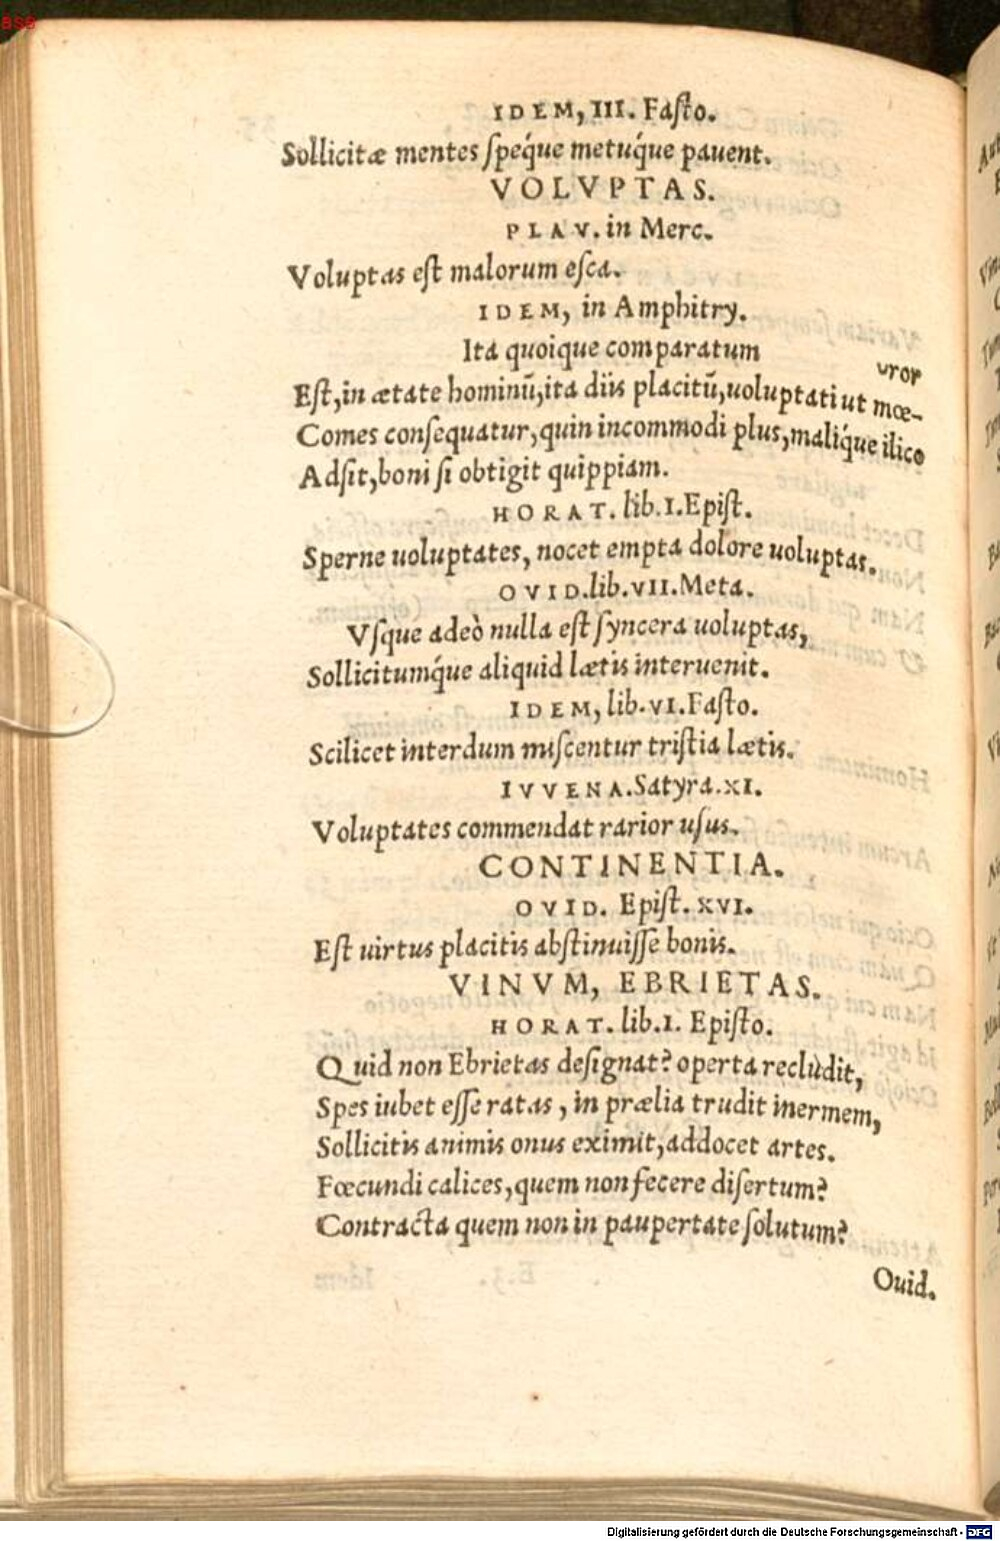 BSB
IDEM, III. Fasto.
Sollicitæ mentes speq́ue metuq́ue pauent.
VOLVPTAS.
PLAV. in Merc.
Voluptas est malorum esca.
IDEM, in Amphitry.
Ita quoique comparatum
Est, in ætate hominũ, ita diis placitũ, uoluptati ut mœ-
uror
Comes consequatur, quin incommodi plus, maliq́ue ilico
Adsit, boni si obtigit quippiam.
HORAT. lib. I. Epist.
Sperne uoluptates, nocet empta dolore uoluptas.
OVID. lib. VII. Meta.
Vsque adeò nulla est syncera uoluptas,
Sollicitumq́ue aliquid lætis interuenit.
IDEM, lib. VI. Fasto.
Scilicet interdum miscentur tristia lætis.
IVVENA. Satyra. XI.
Voluptates commendat rarior usus.
CONTINENTIA.
OVID. Epist. XVI.
Est uirtus placitis abstinuisse bonis.
VINVM, EBRIETAS.
HORAT. lib. I. Episto.
Quid non Ebrietas designat? operta reclùdit,
Spes iubet esse ratas, in prælia trudit inermem,
Sollicitis animis onus eximit, addocet artes.
Fœcundi calices, quem non fecere disertum?
Contracta quem non in paupertate solutum?
Ouid.
Digitalisierung gefördert durch die Deutsche Forschungsgemeinschaft - DFG